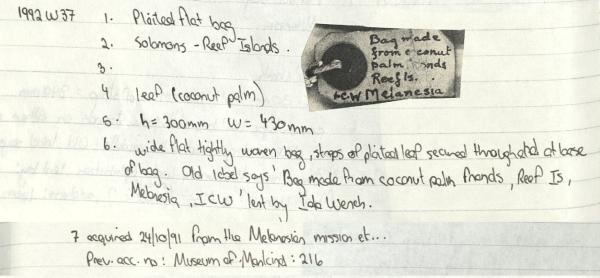 1992 W 37 1. Plaited flat bag
2. Solomons - Reef Islands.
3.
4 leaf (coconut palm)
5. h = 300mm w = 430mm
6. wide flat tightly woven bag, straps of plaited leaf secured through and at base
of bag. Old label says 'Bag made from coconut palm fronds, Reef Is,
Melanesia, ICW' lent by Ida Wench.
7 acquired 24/10/91 from the Melanesian mission et...
Prev. acc. no: Museum of Mankind: 216
Bag made
from coconut
palm fronds
Reef Is.
ICW Melanesia